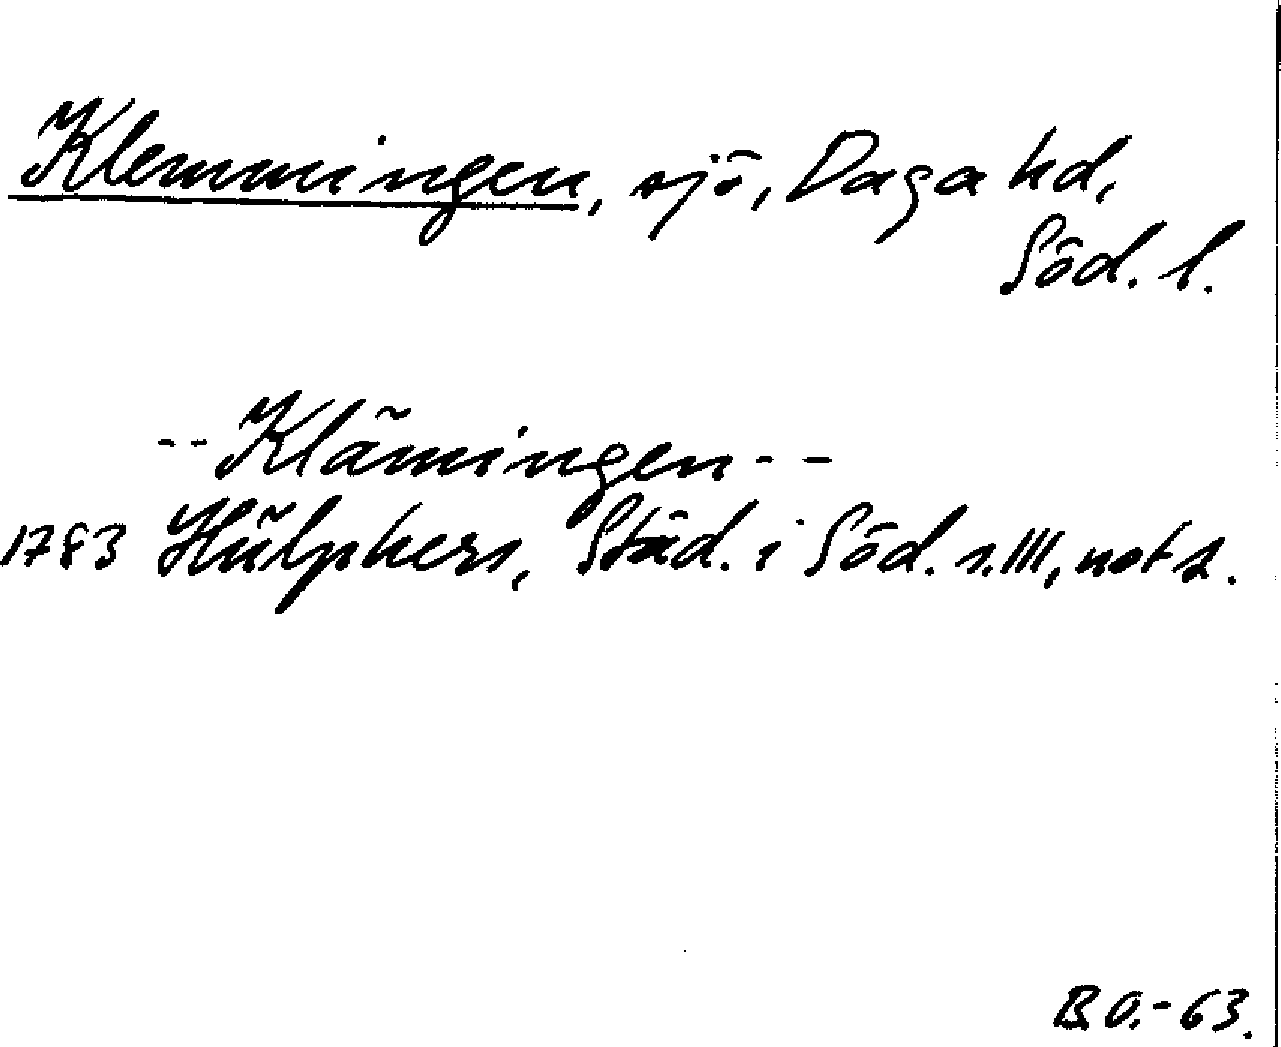 Klemmingen, sjö, Daga hd,
Söd. l.
-- Klämingen --
1783 Hülphers, Städ. i Söd. s. III, not 2.
B.O.-63.